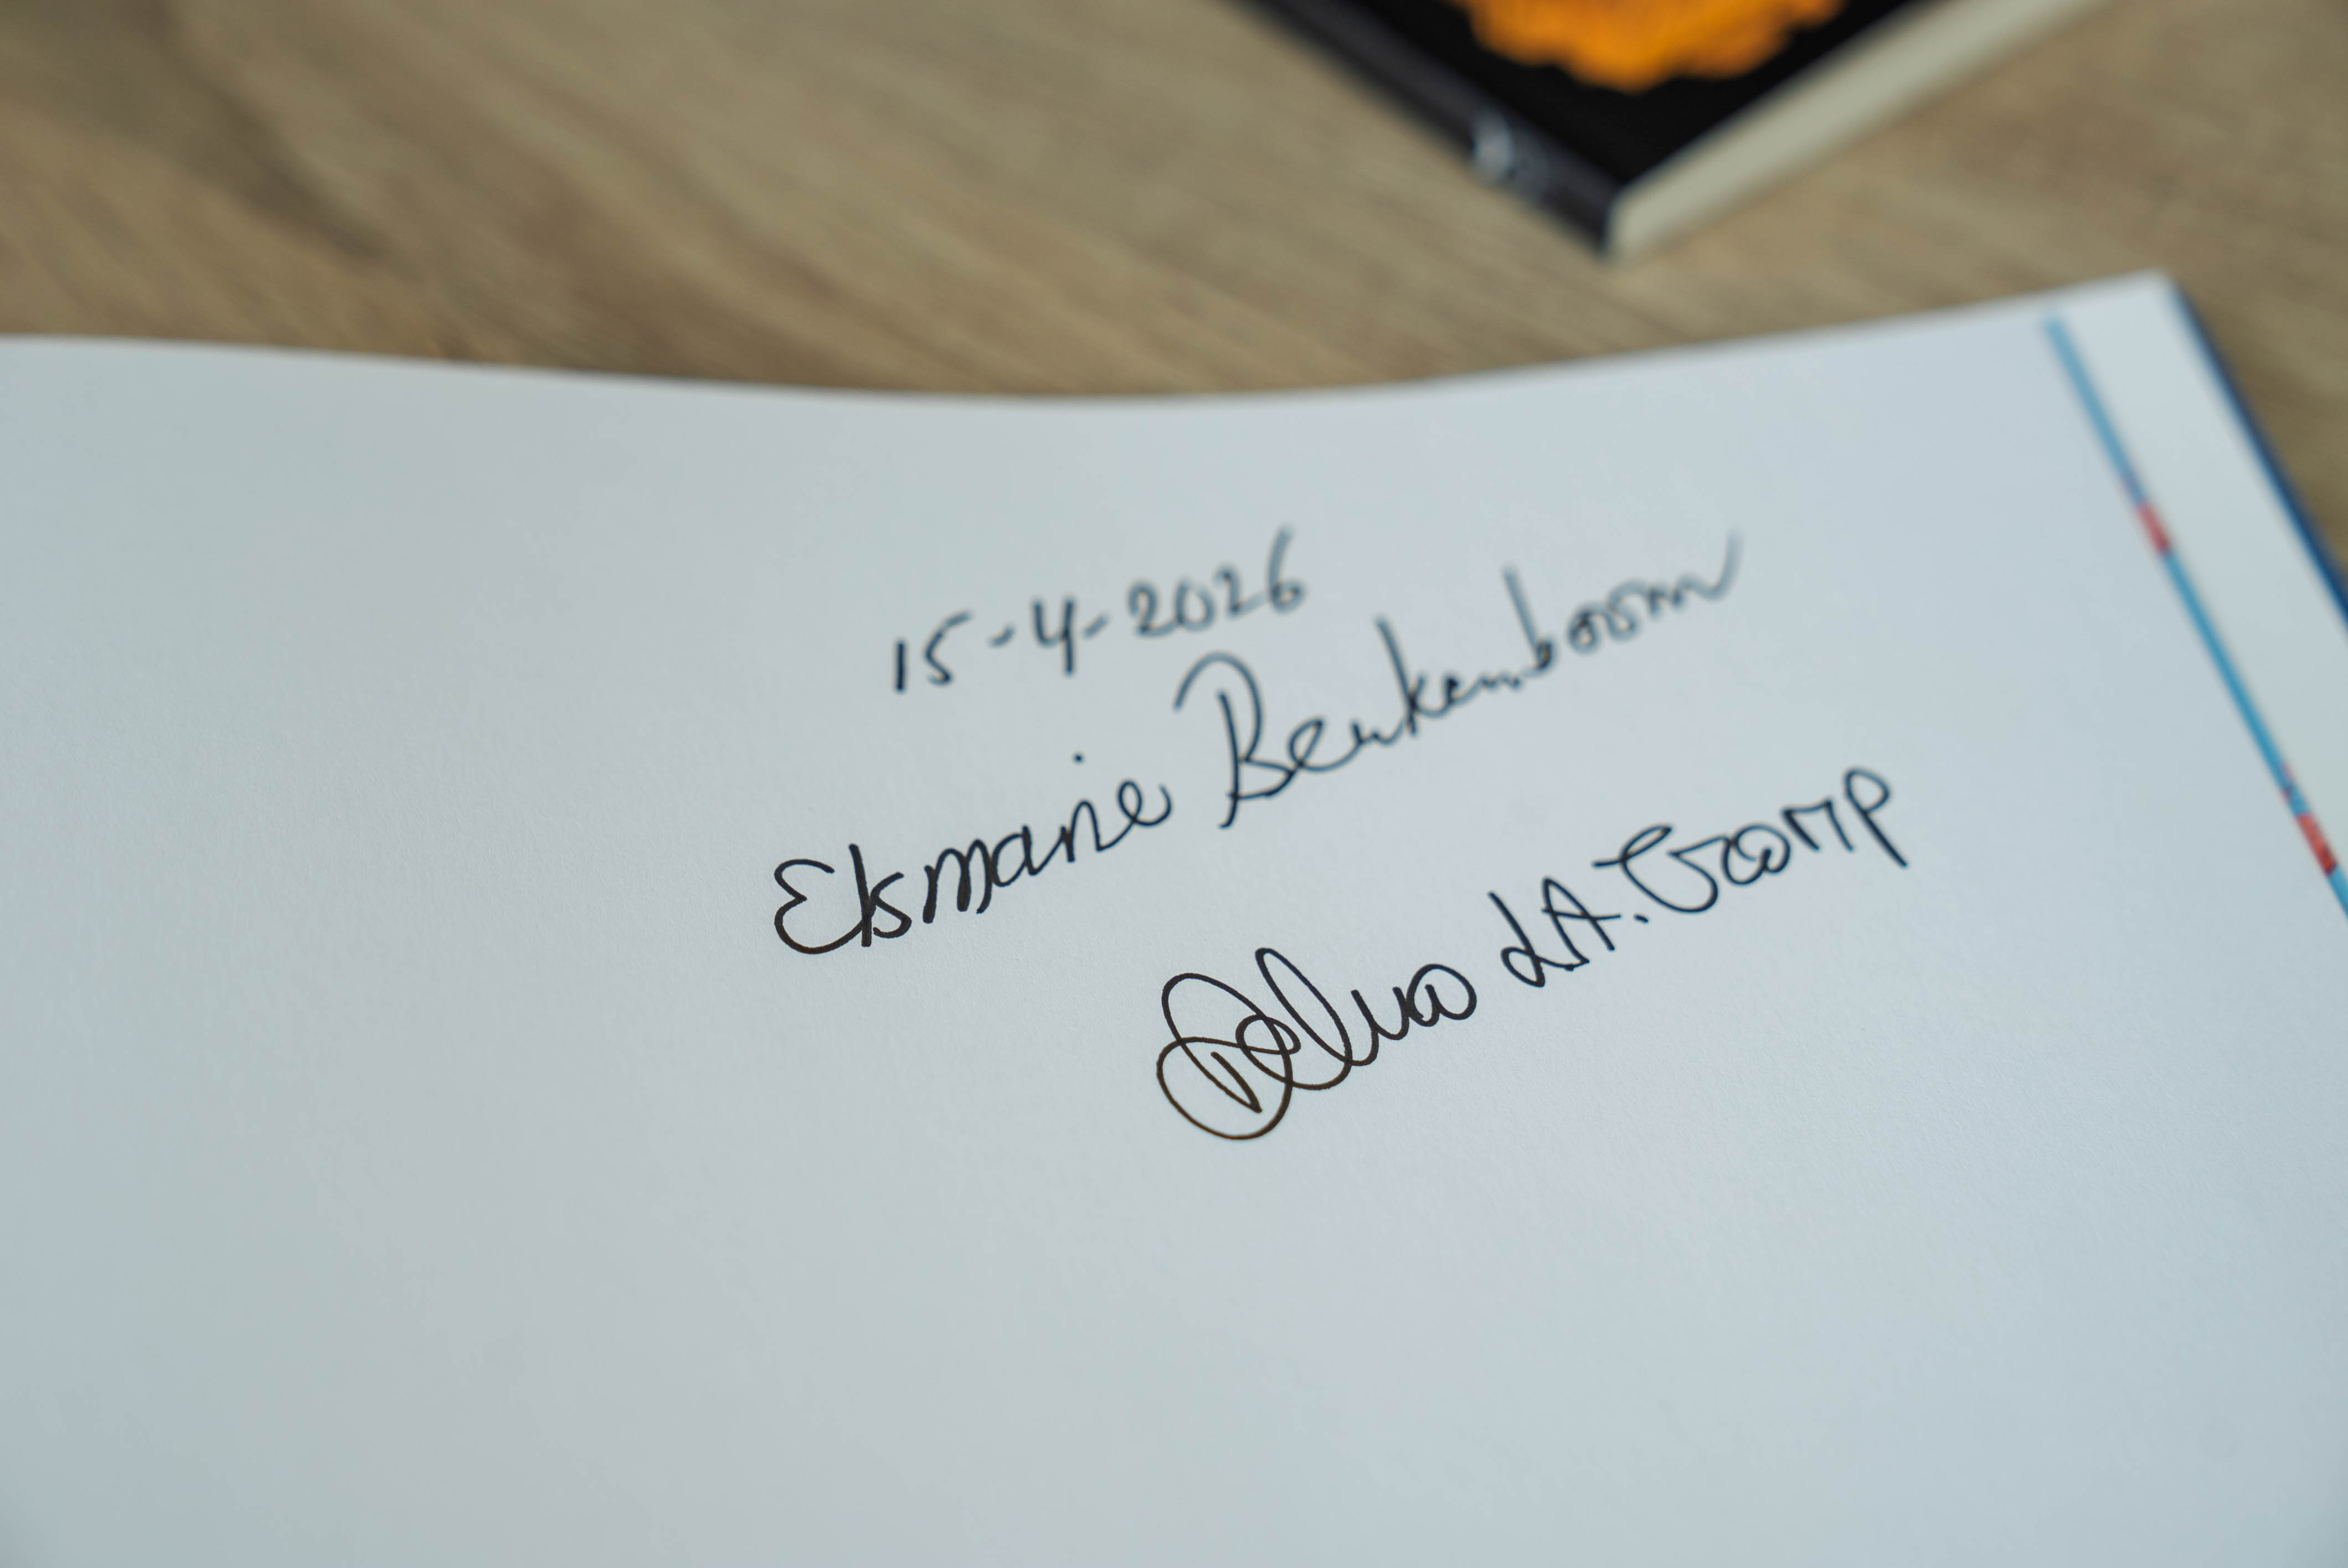 15-4-2026
Elsmarie Beukenboom
L.A. Tromp